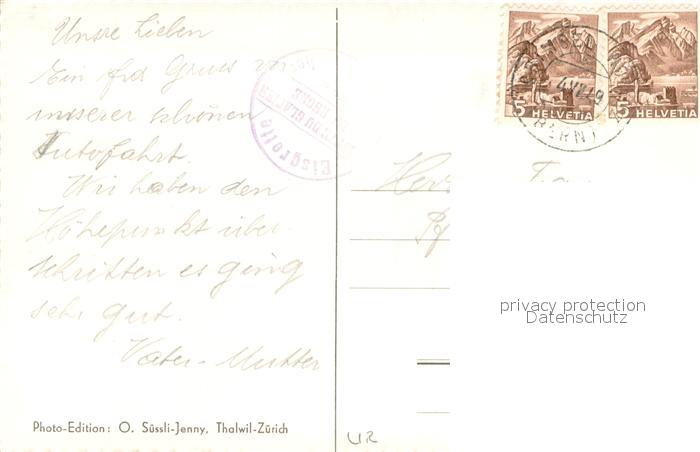 Unsre Lieben
Ein frd Gruss von
unserer schönen
Autofahrt.
Wir haben den
Höhepunkt über-
schritten es ging
sehr gut.
Vater-Mutter
Photo-Edition: O. Süssli-Jenny, Thalwil-Zürich
Eisgrotte
DU GLACIER
RHONE
5 HELVETIA
5 HELVETIA
(BERN)
Herr
privacy protection
Datenschutz
UR